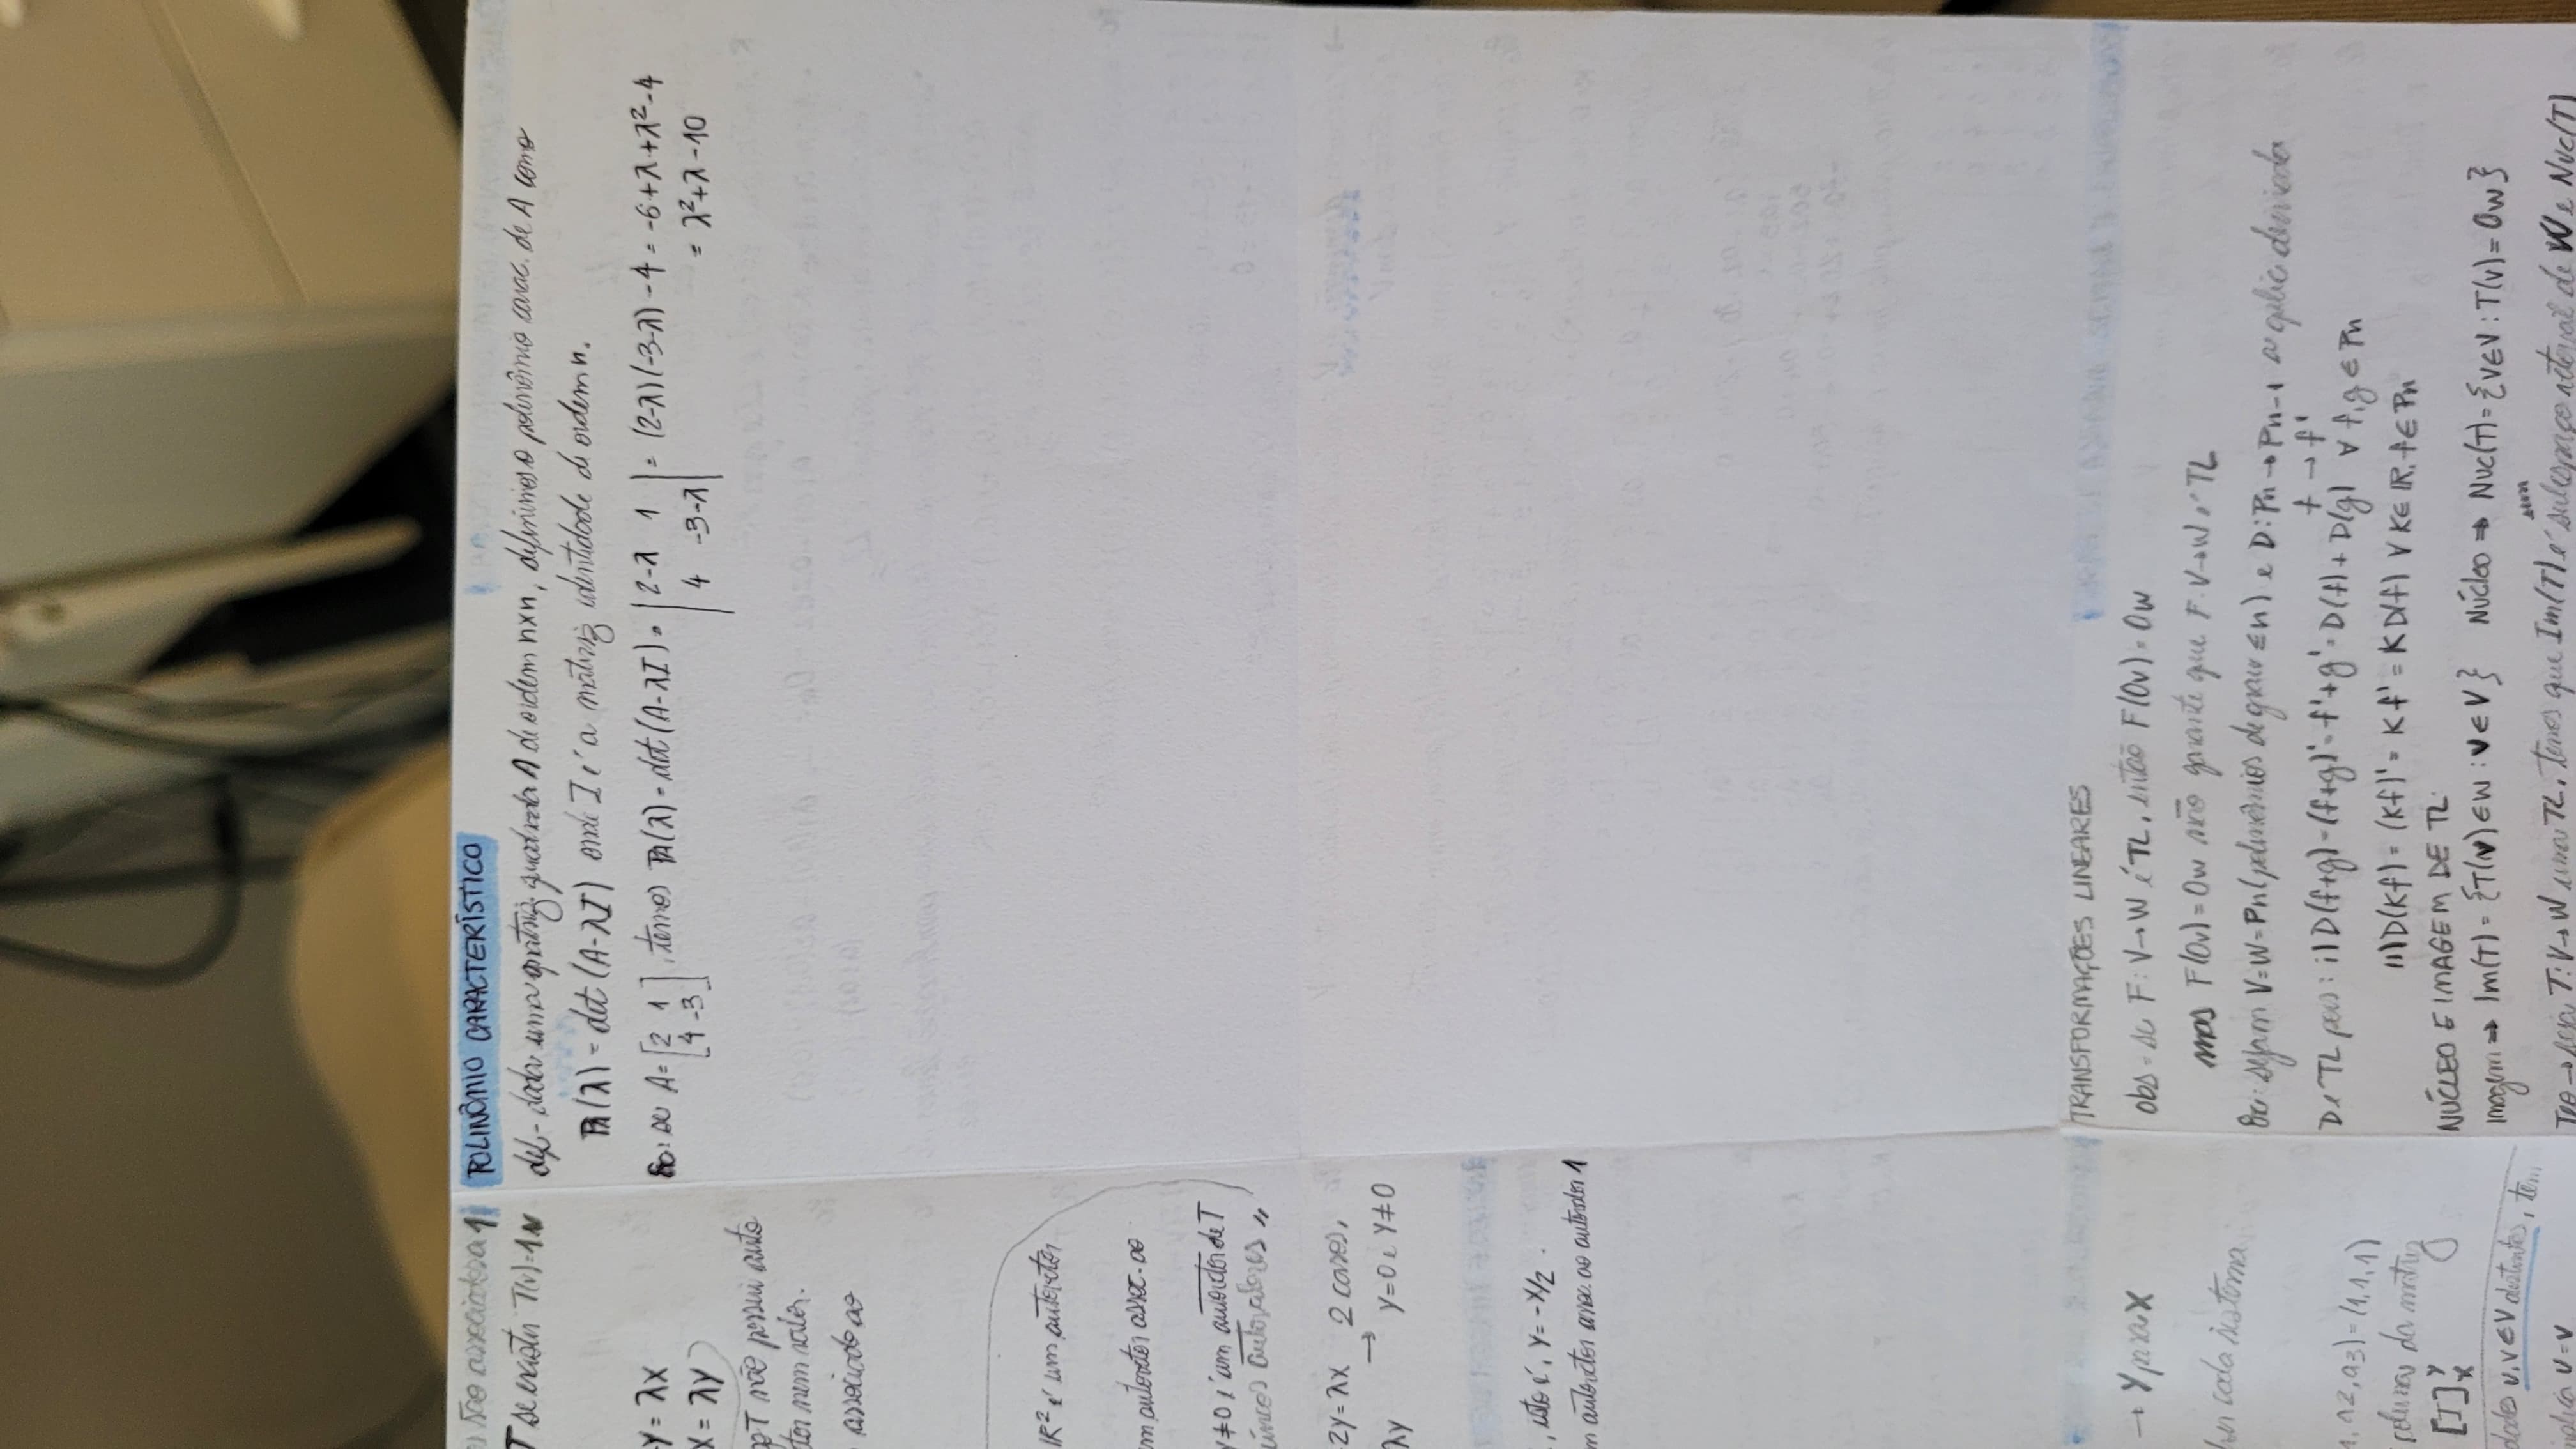 não associados a 1
T se existir T(v)=1v
-y=λx
x=λy
T não possui auto
nem valor.
associado ao
IR² é um autovetor
um autovetor assoc. ao
y≠0 é um autovetor de T
únicos autovalores //
2y=λx → 2 casos,
λy y=0 e y≠0
, isto é, y=-x/2.
um autovetor assoc. ao autovalor 1
→ Y para X
cada sistema
, a2, a3)=(1,1,1)
colunas da matriz
[I]
dados u,v∈V distintos, tem
implica u=v
POLINÔMIO CARACTERÍSTICO
def- dada uma matriz quadrada A de ordem n×n, definimos o polinômio carac. de A como
PA(λ) = det(A-λI) onde I é a matriz identidade de ordem n.
Ex: se A=[2 1 , temos PA(λ)=det(A-λI)= |2-λ 1| = (2-λ)(-3-λ)-4 = -6+λ+λ²-4
4 -3] 4 -3-λ| = λ²+λ-10
TRANSFORMAÇÕES LINEARES
obs- se F:V→W é TL, então F(0v)=0w
mas F(0v)=0w não garante que F:V→W é TL
Ex: sejam V=W=Pn(polinômios de grau ≤n) e D:Pn→Pn-1 a aplic. derivada
f→f'
D é TL pois: i)D(f+g)=(f+g)'=f'+g'=D(f)+D(g) ∀ f,g∈Pn
ii)D(Kf)=(Kf)'=Kf'=KD(f) ∀K∈IR, f∈Pn
NÚCLEO E IMAGEM DE TL:
Imagem ⇒ Im(T)={T(v)∈W:v∈V} Núcleo ⇒ Nuc(T)={v∈V:T(v)=0w}
Teo → seja T:V→W uma TL, temos que Im(T) é um subespaço vetorial de W e Nuc(T)